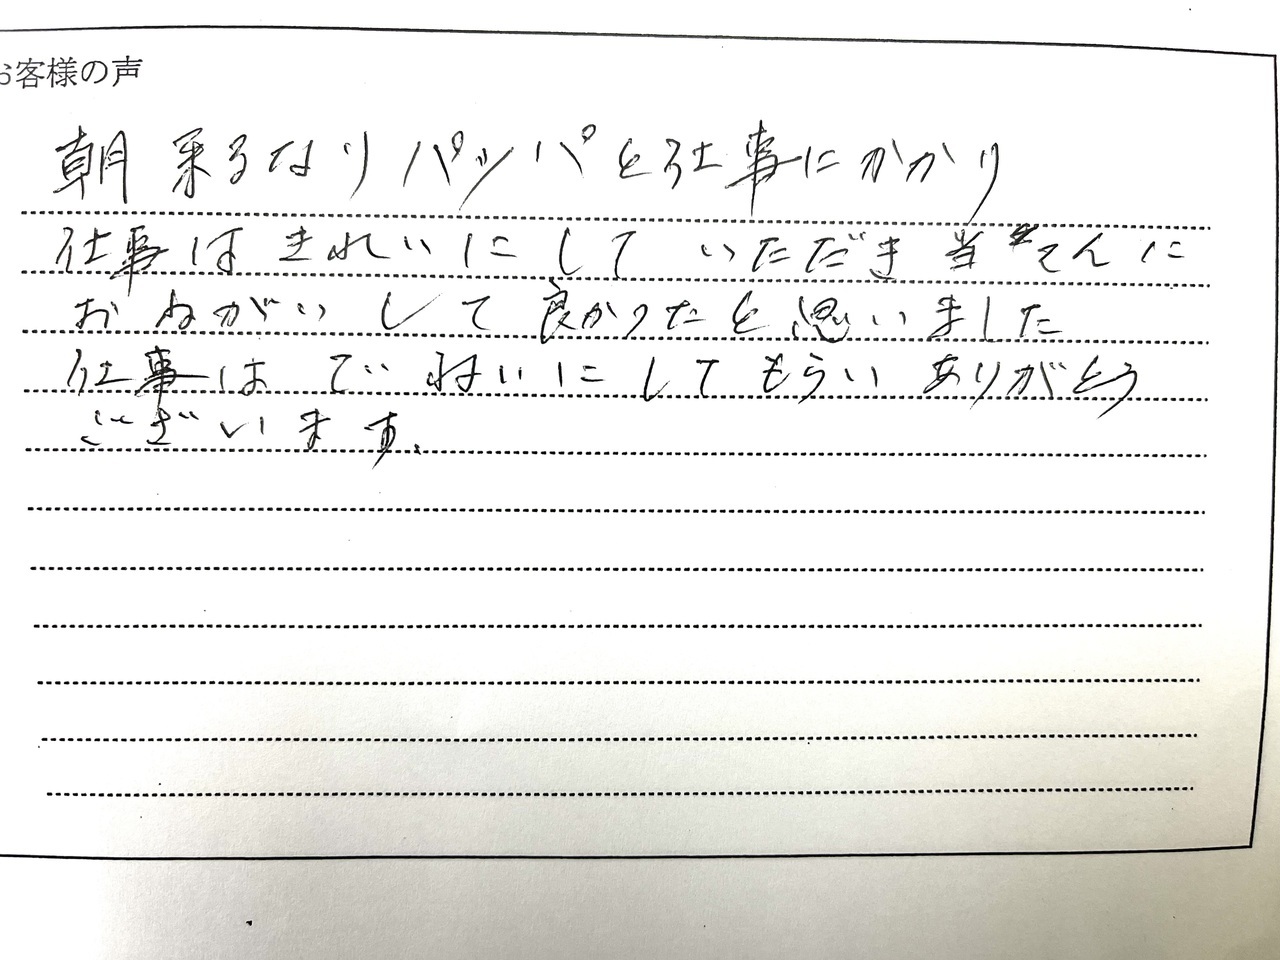 お客様の声
朝来るなりパッパと仕事にかかり
仕事はきれいにしていただき当てんに
おねがいして良かったと思いました
仕事はていねいにしてもらいありがとう
ございます.